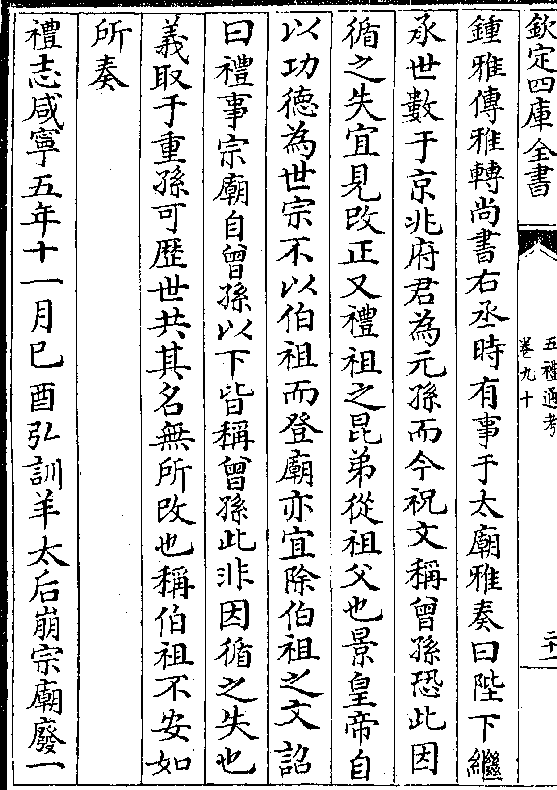 欽定四庫全書
五禮通考
卷九十
二十一
鍾雅傳雅轉尚書右丞時有事于太廟雅奏曰陛下繼
承世數于京兆府君為元孫而今祝文稱曾孫恐此因
循之失宜見改正又禮祖之昆弟從祖父也景皇帝自
以功德為世宗不以伯祖而登廟亦宜除伯祖之文詔
曰禮事宗廟自曾孫以下皆稱曾孫此非因循之失也
義取于重孫可歴世共其名無所改也稱伯祖不安如
所奏
禮志咸寧五年十一月巳酉弘訓羊太后崩宗廟廢一